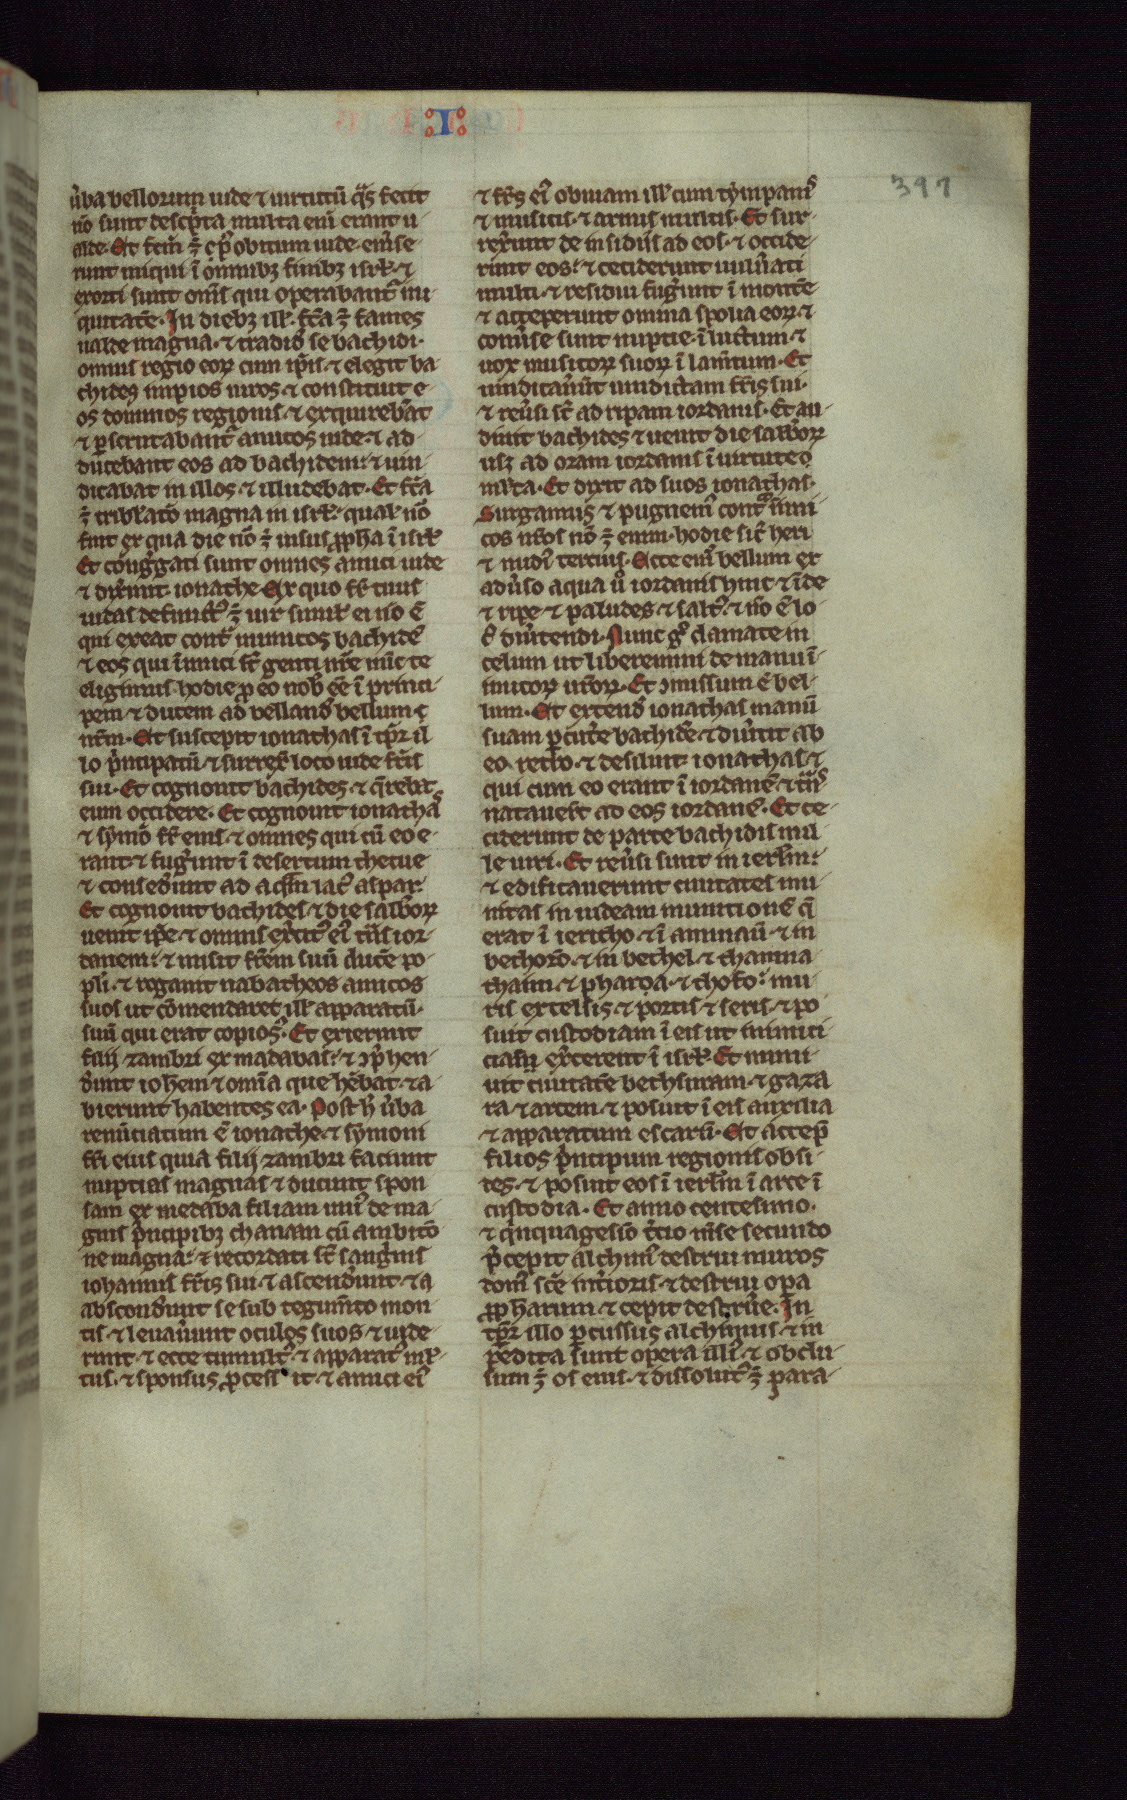 I
397
ũba bellorum iude ⁊ uirtutũ q̃s fecit
nõ sunt descp̃ta multa eni erant u
alde. Et fc̃m ÷ p̃ obitum iude emẽse
runt iniqui ĩ omnibꝫ finibꝫ isrł. ⁊
exorti sunt om̃s qui operabant̃ ini
quitatẽ. In diebꝫ ill. fc̃a ÷ fames
ualde magna. ⁊ tradid̃ se bachidi.
omnis regio eoꝝ cum ip̃is. ⁊ elegit ba
chides impios uiros ⁊ constituit e
os dominos regionis. ⁊ exquirebãt
⁊ ꝑscrutabant̃ amicos iude ⁊ ad
ducebant eos ad bachidem. ⁊ uin
dicabat in illos ⁊ illudebat. Et fc̃a
÷ tribłatõ magna in isrł. qualˀ nõ
fuit ex qua die nõ ÷ uisus ꝓpha ĩ isrł
Et cong̃gati sunt omnes amici iude
⁊ dix̃unt ionathe. Ex quo fr̃ tuus
iudas defunctˀ ÷ uir similˀ ei nõ ẽ
qui exeat contˀ inimicos bachidẽ
⁊ eos qui inimici st̃ genti nr̃e nũc te
eligimus hodie ꝓ eo nob̃ ee ĩ princi
pem ⁊ ducem ad bellandˀ bellum
nr̃m. Et suscepit ionathas ĩ tp̃r il
lo p̃ncipatũ ⁊ surrex̃ loco iude fr̃is
sui. Et cognouit bachides ⁊ q̃rebat
eum occidere. Et cognouit ionathãs
⁊ symõ fr̃ eius ⁊ omnes qui cũ eo e
rant ⁊ fug̃unt ĩ desertum thecue
⁊ consed̃unt ad aq̃m lacˀ aspar.
Et cognouit bachides ⁊ die sabb̃oꝝ
uenit ip̃e ⁊ omnis ex̃citˀ eiˀ t̃ns ior
danem. ⁊ misit fr̃em suũ ducẽ po
pli. ⁊ rogauit nabatheos amicos
suos ut cõmendaret ill apparatũ
suũ qui erat copiosˀ. Et exierunt
filij zambri ex madaba. ⁊ ↄp̃hen
d̃unt ioh̃em ⁊ omĩa que hẽbat. ⁊ a
bierunt habentes ea. Post h̃ ũba
renũciatum ẽ ionathe ⁊ symoni
fr̃i eius quia filij zambri faciunt
nuptias magnas ⁊ ducunt spon
sam ex medaba filiam uniˀ de ma
gnis p̃ncipibꝫ chanaan cũ ambitõ
ne magna. ⁊ recordati st̃ sang̃uis
iohannis fr̃is sui ⁊ ascend̃unt ⁊ a
abscond̃unt se sub tegum̃to mon
tis. ⁊ leuaũunt oculos suos ⁊ uide
runt. ⁊ ecce tumultˀ ⁊ apparatˀ mł
tus. ⁊ sponsus ꝓcess it ⁊ amici eiˀ
⁊ fr̃s eiˀ obuiam ill cum tympanĩs
⁊ musicis. ⁊ armis multis. Et sur
rex̃unt de insidiis ad eos. ⁊ occide
runt eos. ⁊ ceciderunt uuln̾ati
multi. ⁊ residui fug̃unt ĩ montẽ
⁊ acceperunt omnia spolia eoꝝ ⁊
com̃se sunt nuptie ĩ luctum. ⁊
uox musicoꝝ suoꝝ ĩ lam̃tum. Et
uindicaũunt uindictam fr̃is sui.
⁊ reũsi st̃ ad ripam iordanis. Et au
diuit bachides ⁊ uenit die sabb̃oꝝ
usꝫ ad oram iordanis ĩ uirtute
mlta. Et dixit ad suos ionathas.
Surgamus ⁊ pugnemˀ contˀ inimi
cos nr̃os nõ ÷ enim hodie sicˀ heri
⁊ nudiˀ tercius. Ecce eni bellum ex
adũso aqua ů iordanis hinc ⁊ ĩde
⁊ ripe ⁊ paludes ⁊ saltˀ ⁊ nõ ẽ lo
cˀ diũtendi. Nunc gˀ clamate in
celum ut liberemini de manu ĩ
imicoꝝ ur̃oꝝ. Et ↄmissum ẽ bel
lum. Et extendˀ ionathas manũ
suam ꝑcut̃e bachidẽ ⁊ diũtit ab
eo retro. ⁊ desiluit ionathas ⁊
qui cum eo erant ĩ iordanẽ ⁊ t̃ns
natauer̃t ad eos iordanẽ. Et ce
ciderunt de parte bachidis mil
le uiri. Et reũsi sunt in ierlˀm.
⁊ edificauerunt ciuitates mu
nitas in iudeam munitionẽ q̃
erat ĩ iericho ⁊ ĩ ammaũ ⁊ in
bethorõ ⁊ in bethel ⁊ thamna
tham ⁊ phaROa ⁊ thofo. mu
ris excelsis ⁊ portis ⁊ seris ⁊ po
suit custodiam ĩ eis ut inimici
cias ex̃cerent ĩ isrł. Et muni
uit ciuitatẽ bethsuram ⁊ gaza
ra ⁊ arcem ⁊ posuit ĩ eis auxilia
⁊ apparatum escarũ. Et accep̃
filios p̃ncipum regionis obsi
des ⁊ posuit eos ĩ ierlˀm ĩ arce ĩ
custodia. Et anno centesimo.
⁊ q̃nquagesĩo t̃cio m̃se secundo
p̃cepit alchimˀ destrui muros
domˀ sc̃e int̃ioris ⁊ destrui opa
ꝓpharum ⁊ cepit destrũe. In
tp̃r illo ꝑcussus alchimus ⁊ in
pedita sunt opera illiˀ ⁊ obclu
sum ÷ os eius ⁊ dissolutˀ ÷ para